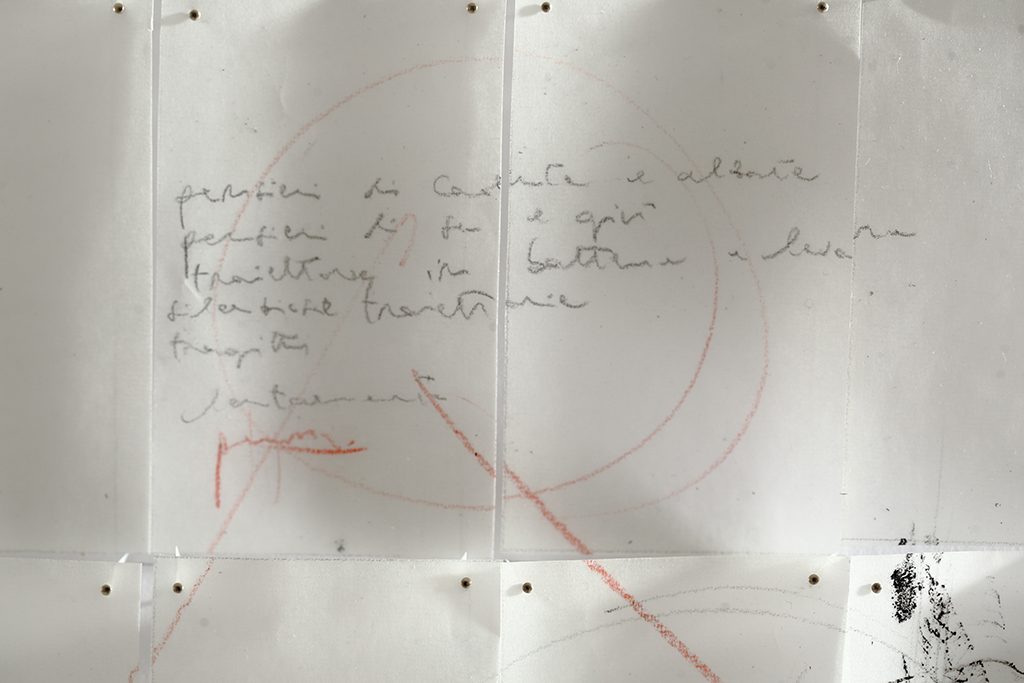 pensieri di caduta e alzate
pensieri di su e giù
traiettorie in battere e levare
silenziose traiettorie
tragitti
lentamente